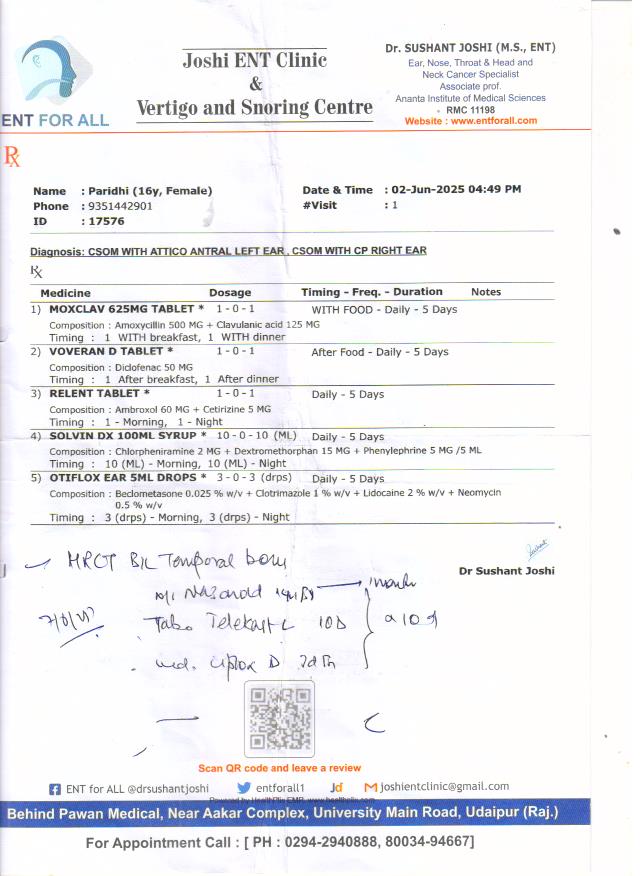 Joshi ENT Clinic
&
Vertigo and Snoring Centre
ENT FOR ALL
Dr. SUSHANT JOSHI (M.S., ENT)
Ear, Nose, Throat & Head and
Neck Cancer Specialist
Associate prof.
Ananta Institute of Medical Sciences
RMC 11198
Website : www.entforall.com
Rx
Name : Paridhi (16y, Female)
Phone : 9351442901
ID : 17576
Date & Time : 02-Jun-2025 04:49 PM
#Visit : 1
Diagnosis: CSOM WITH ATTICO ANTRAL LEFT EAR , CSOM WITH CP RIGHT EAR
Rx
Medicine Dosage Timing - Freq. - Duration Notes
1) MOXCLAV 625MG TABLET * 1 - 0 - 1 WITH FOOD - Daily - 5 Days
Composition : Amoxycillin 500 MG + Clavulanic acid 125 MG
Timing : 1 WITH breakfast, 1 WITH dinner
2) VOVERAN D TABLET * 1 - 0 - 1 After Food - Daily - 5 Days
Composition : Diclofenac 50 MG
Timing : 1 After breakfast, 1 After dinner
3) RELENT TABLET * 1 - 0 - 1 Daily - 5 Days
Composition : Ambroxol 60 MG + Cetirizine 5 MG
Timing : 1 - Morning, 1 - Night
4) SOLVIN DX 100ML SYRUP * 10 - 0 - 10 (ML) Daily - 5 Days
Composition : Chlorpheniramine 2 MG + Dextromethorphan 15 MG + Phenylephrine 5 MG /5 ML
Timing : 10 (ML) - Morning, 10 (ML) - Night
5) OTIFLOX EAR 5ML DROPS * 3 - 0 - 3 (drps) Daily - 5 Days
Composition : Beclometasone 0.025 % w/v + Clotrimazole 1 % w/v + Lidocaine 2 % w/v + Neomycin
0.5 % w/v
Timing : 3 (drps) - Morning, 3 (drps) - Night
Dr Sushant Joshi
HRCT B/L Temporal bone
Tab. Telekast L 10D
D
Scan QR code and leave a review
ENT for ALL @drsushantjoshi entforall1 Jd joshientclinic@gmail.com
Powered by HealthPlix EMR. www.healthplix.com
Behind Pawan Medical, Near Aakar Complex, University Main Road, Udaipur (Raj.)
For Appointment Call : [ PH : 0294-2940888, 80034-94667]